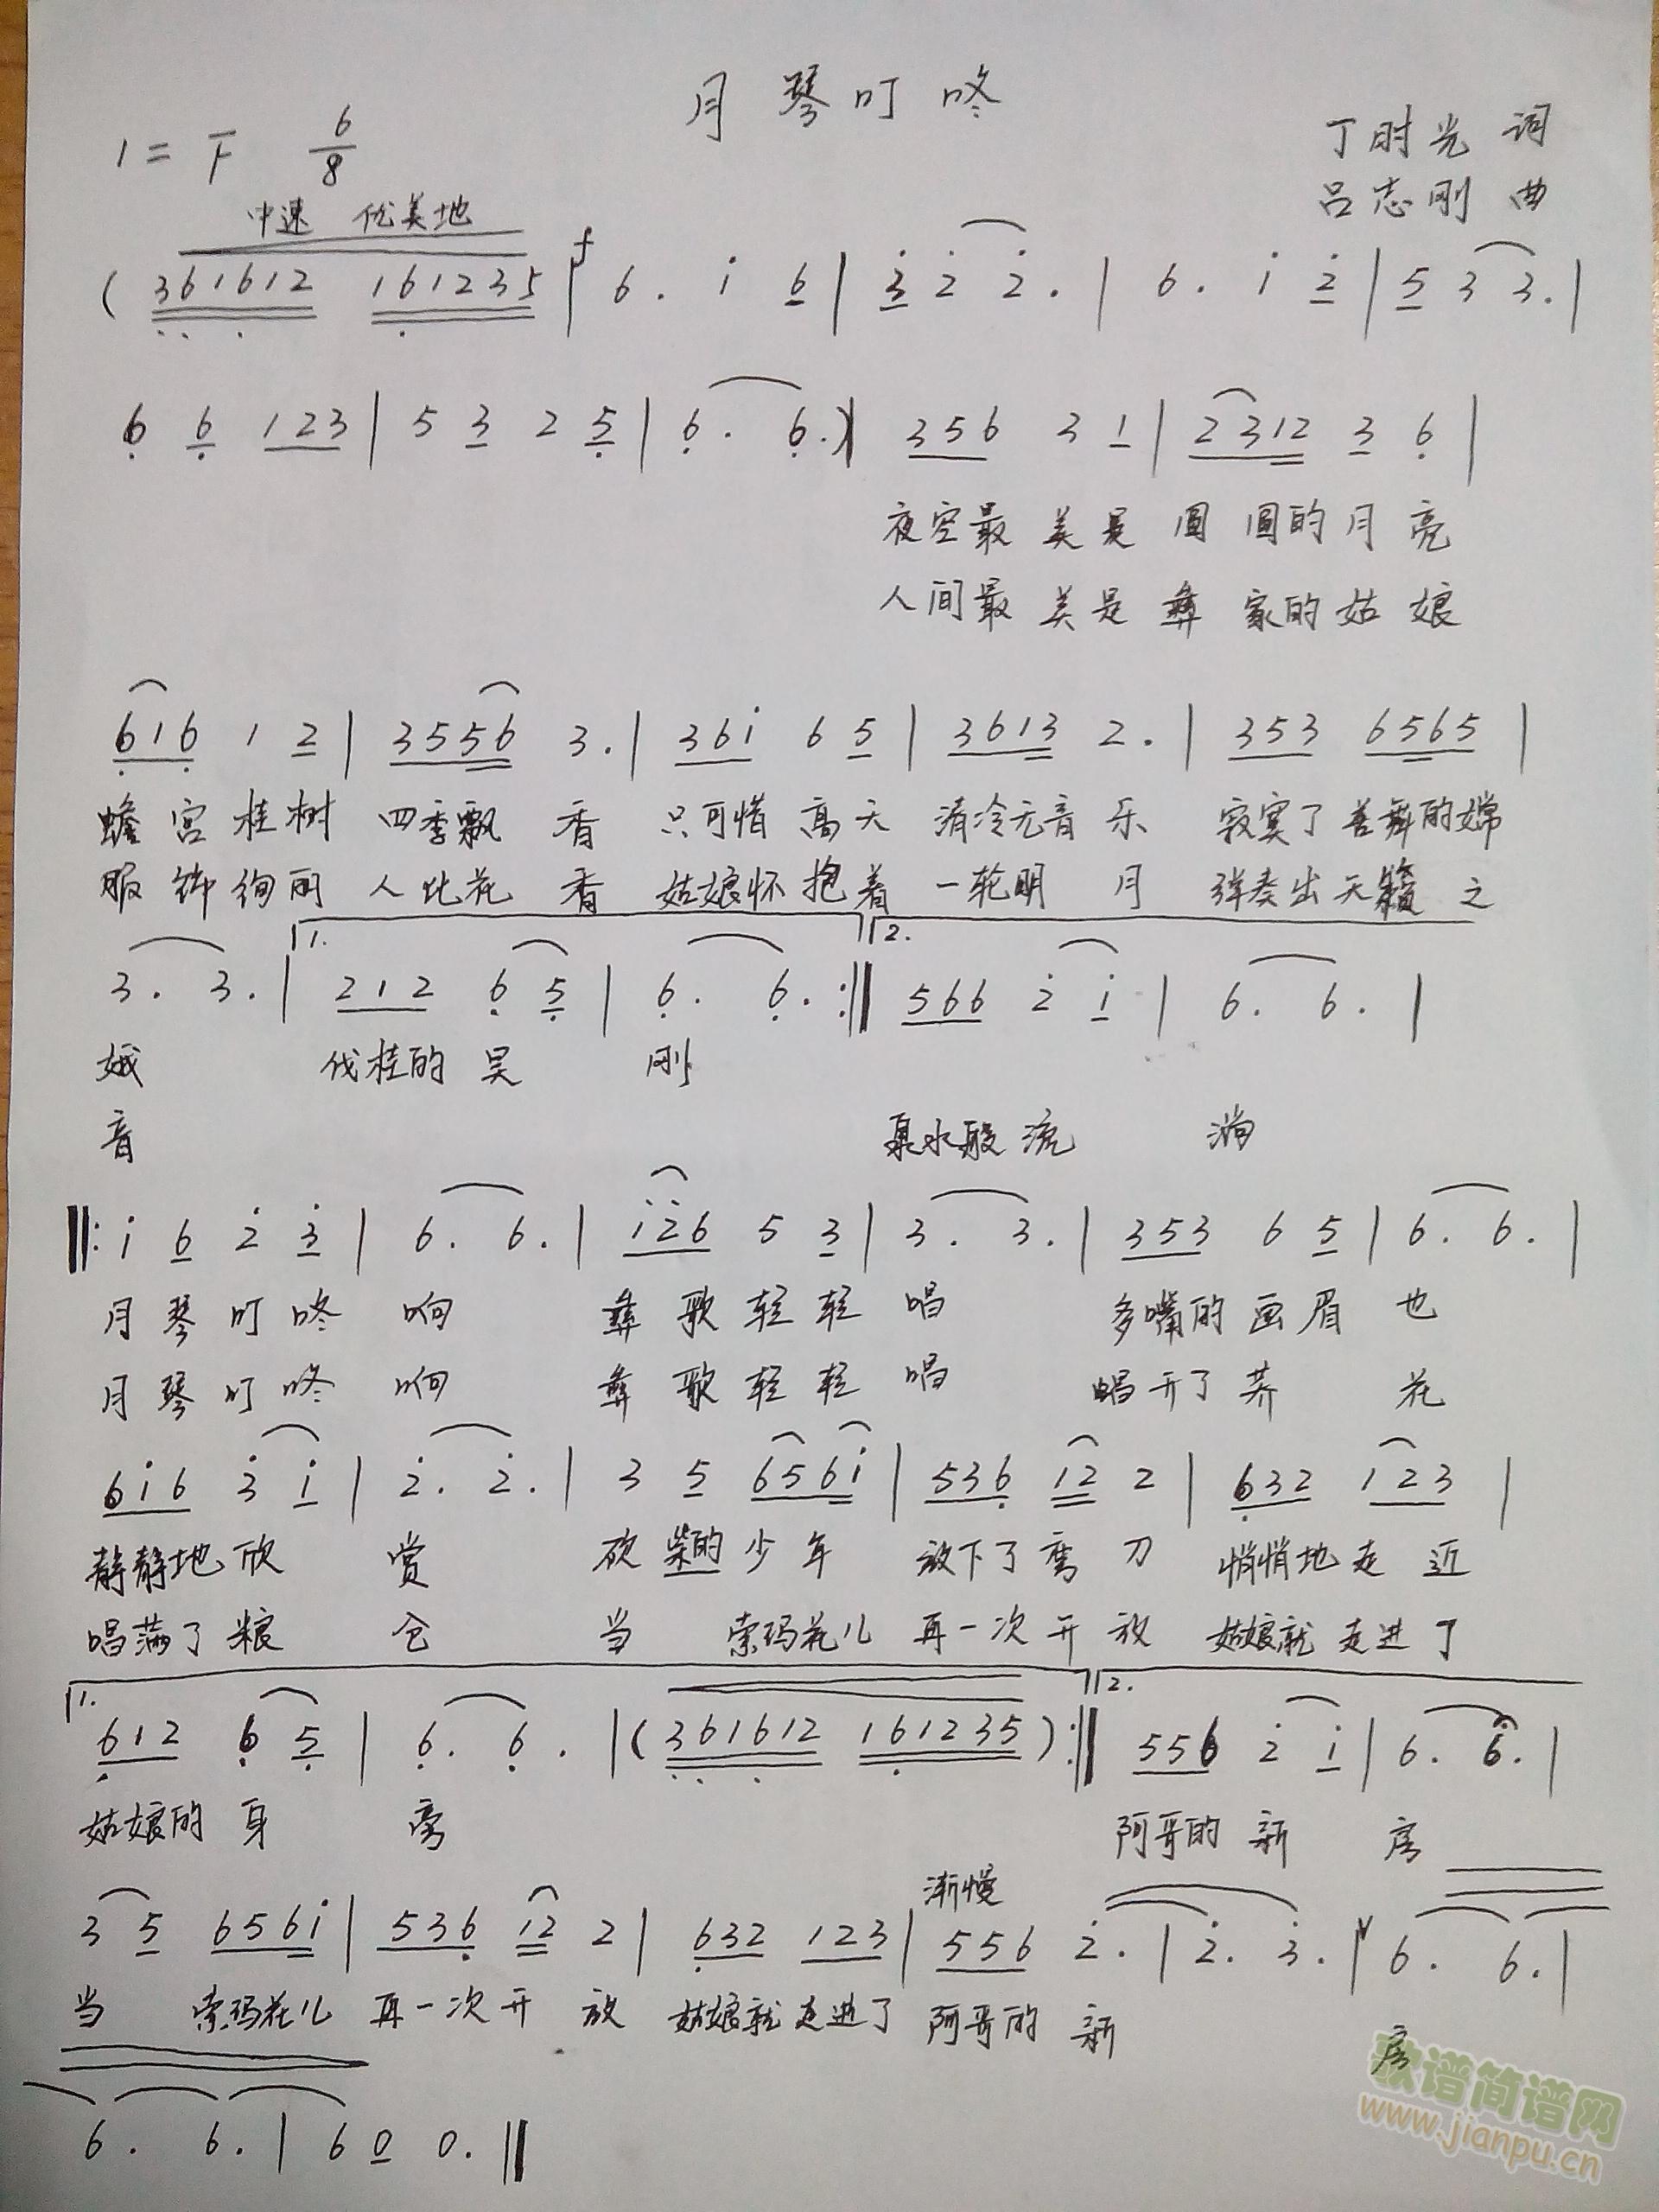 月琴叮咚
1=F 6/8
丁时光 词
吕志刚 曲
中速 优美地
(361612 161235 | f 6. i 6 | 3 2 2. | 6. i 2 | 5 3 3. |
6 6 123 | 5 3 2 5 | 6. 6.) | 356 3 1 | 2312 3 6 |
夜空最 美是 圆 圆的月 亮
人间最 美是 彝 家的姑 娘
616 1 2 | 3556 3. | 36i 6 5 | 3613 2. | 353 6565 |
蟾宫桂树 四季飘 香 只可惜 高天 清冷无音 乐 寂寞了 善舞的嫦
服饰绚丽 人比花 香 姑娘怀 抱着 一轮明 月 弹奏出天籁 之
3. 3. | 1. 212 6 5 | 6. 6. :‖ 2. 566 2 i | 6. 6. |
娥 伐桂的 吴 刚
音 泉水般 流 淌
‖: i 6 2 3 | 6. 6. | i26 5 3 | 3. 3. | 353 6 5 | 6. 6. |
月琴叮咚 响 彝歌轻轻 唱 多嘴的画眉 也
月琴叮咚 响 彝歌轻轻 唱 唱开了荞 花
6i6 2 i | 2. 2. | 3 5 656i | 536 12 2 | 632 123 |
静静地欣 赏 砍柴的少年 放下了弯 刀 悄悄地走 近
唱满了粮 仓 当 索玛花儿 再一次开 放 姑娘就走进了
1. 612 6 5 | 6. 6. | (361612 161235) :‖ 2. 556 2 i | 6. 6. |
姑娘的 身 旁 阿哥的 新 房
渐慢
3 5 656i | 536 12 2 | 632 123 | 556 2. | 2. 3. | 6. 6. |
当 索玛花儿 再一次开 放 姑娘就走进了 阿哥的 新 房
6. 6. | 6 0 0. ‖
歌谱简谱网
www.jianpu.cn